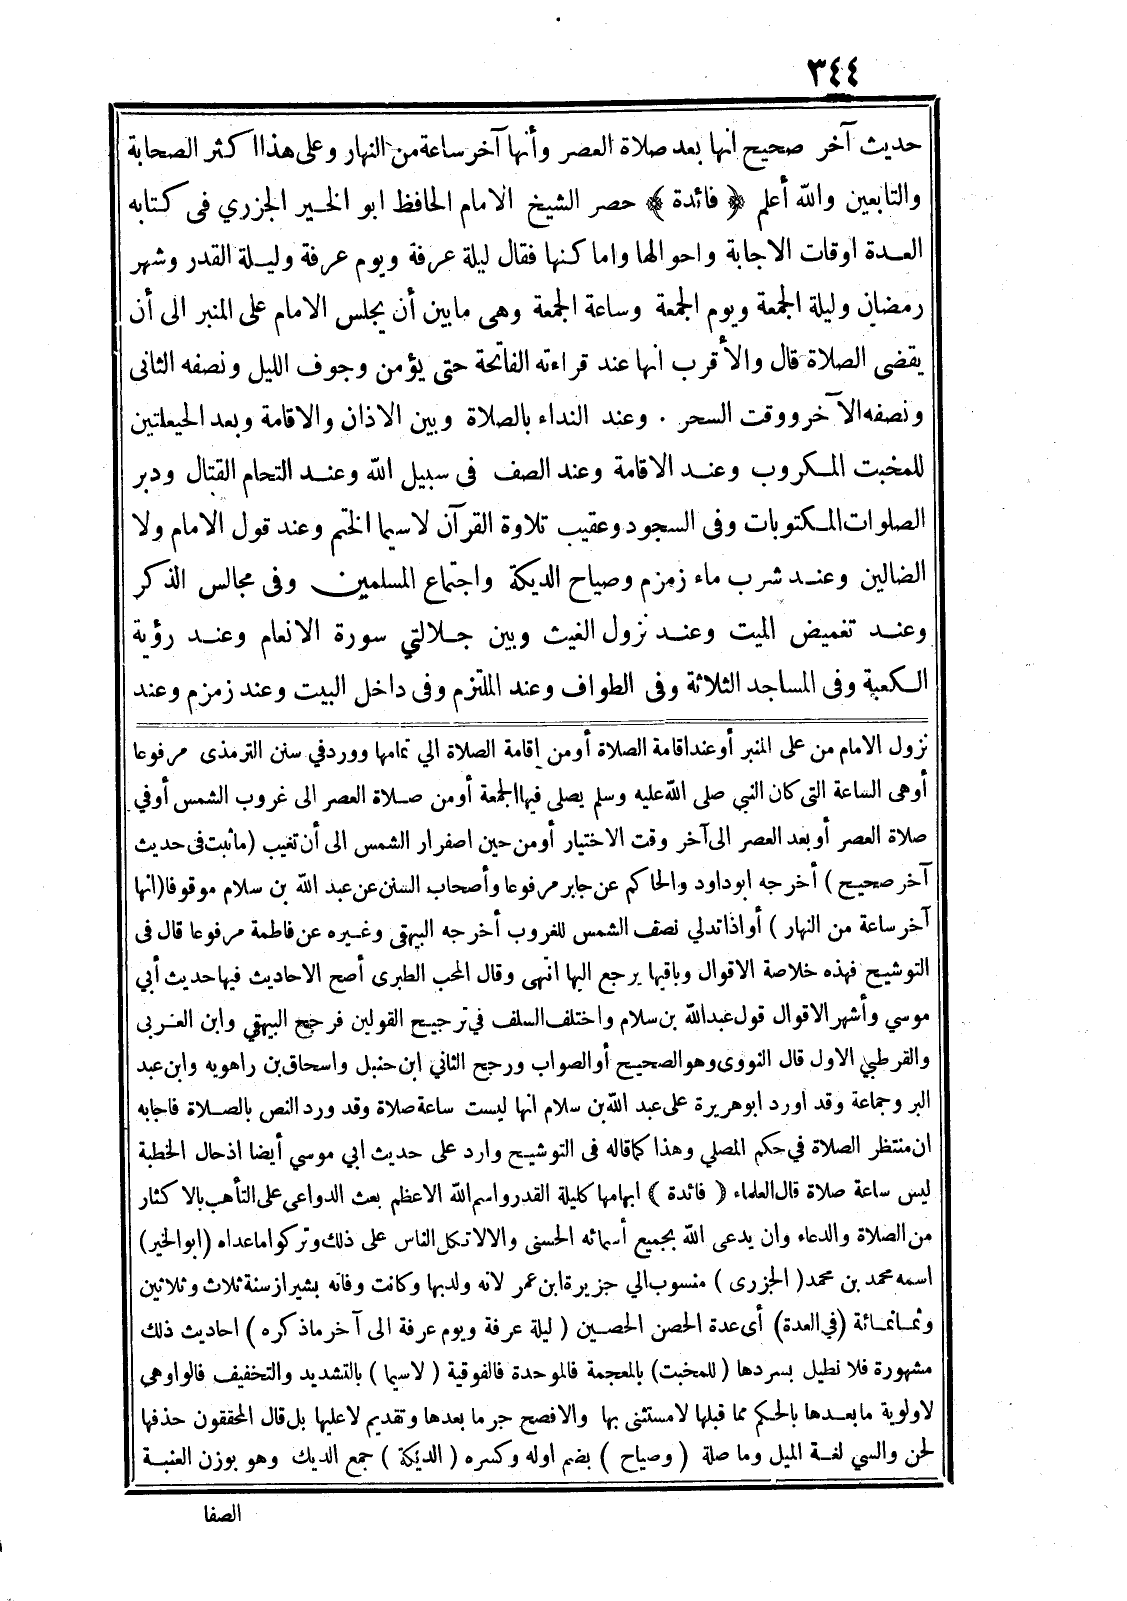 ٣٤٤
حديث آخر صحيح انها بعد صلاة العصر وأنها آخر ساعة من النهار وعلى هذا اكثر الصحابة
والتابعين والله أعلم ﴿ فائدة ﴾ حصر الشيخ الامام الحافظ ابو الخير الجزري فى كتابه
العدة اوقات الاجابة واحوالها واماكنها فقال ليلة عرفة ويوم عرفة وليلة القدر وشهر
رمضان وليلة الجمعة ويوم الجمعة وساعة الجمعة وهى مابين أن يجلس الامام على المنبر الى أن
يقضى الصلاة قال والأقرب انها عند قراءته الفاتحة حتى يؤمن وجوف الليل ونصفه الثانى
ونصفه الآخر ووقت السحر . وعند النداء بالصلاة وبين الاذان والاقامة وبعد الحيعلتين
للمخبت المكروب وعند الاقامة وعند الصف فى سبيل الله وعند التحام القتال ودبر
الصلوات المكتوبات وفى السجود وعقيب تلاوة القرآن لاسيما الختم وعند قول الامام ولا
الضالين وعند شرب ماء زمزم وصياح الديكة واجتماع المسلمين وفى مجالس الذكر
وعند تغميض الميت وعند نزول الغيث وبين جلالتي سورة الانعام وعند رؤية
الكعبة وفى المساجد الثلاثة وفى الطواف وعند الملتزم وفى داخل البيت وعند زمزم وعند
نزول الامام من على المنبر أو عند اقامة الصلاة أو من اقامة الصلاة الي تمامها وورد في سنن الترمذى مرفوعا
أو هى الساعة التى كان النبي صلى الله عليه وسلم يصلى فيها الجمعة أو من صلاة العصر الى غروب الشمس أو في
صلاة العصر أو بعد العصر الى آخر وقت الاختيار أو من حين اصفرار الشمس الى أن تغيب (ما ثبت فى حديث
آخر صحيح ) أخرجه ابو داود والحاكم عن جابر مرفوعا وأصحاب السنن عن عبد الله بن سلام موقوفا (انها
آخر ساعة من النهار ) أو اذا تدلي نصف الشمس للغروب أخرجه البيهقى وغيره عن فاطمة مرفوعا قال فى
التوشيح فهذه خلاصة الاقوال وباقيها يرجع اليها انتهى وقال المحب الطبرى أصح الاحاديث فيها حديث أبي
موسي وأشهر الاقوال قول عبد الله بن سلام واختلف السلف في ترجيح القولين فرجح البيهقي وابن العربى
والقرطبي الاول قال النووى وهو الصحيح أو الصواب ورجح الثاني ابن حنبل واسحاق بن راهويه وابن عبد
البر وجماعة وقد اورد ابو هريرة على عبد الله بن سلام انها ليست ساعة صلاة وقد ورد النص بالصلاة فاجابه
ان منتظر الصلاة في حكم المصلي وهذا كما قاله فى التوشيح وارد على حديث ابي موسي أيضا اذ حال الخطبة
ليس ساعة صلاة قال العلماء ( فائدة ) ابهامها كليلة القدر واسم الله الاعظم بعث الدواعى على التأهب بالاكثار
من الصلاة والدعاء وان يدعى الله بجميع أسمائه الحسنى والا لاتكل الناس على ذلك وتركوا ما عداه (ابو الخير)
اسمه محمد بن محمد ( الجزرى ) منسوب الي جزيرة ابن عمر لانه ولد بها وكانت وفاته بشيراز سنة ثلاث وثلاثين
وثمانمائة (في العدة) أى عدة الحصن الحصين ( ليلة عرفة ويوم عرفة الى آخر ما ذكره ) احاديث ذلك
مشهورة فلا نطيل بسردها (للمخبت) بالمعجمة فالموحدة فالفوقية ( لاسيما ) بالتشديد والتخفيف فالواو هى
لاولوية ما بعدها بالحكم مما قبلها لا مستثنى بها والافصح جر ما بعدها وتقديم لا عليها بل قال المحققون حذفها
لحن والسي لغة الميل وما صلة ( وصياح ) بضم اوله وكسره ( الديكة ) جمع الديك وهو بوزن العنبة
الصفا